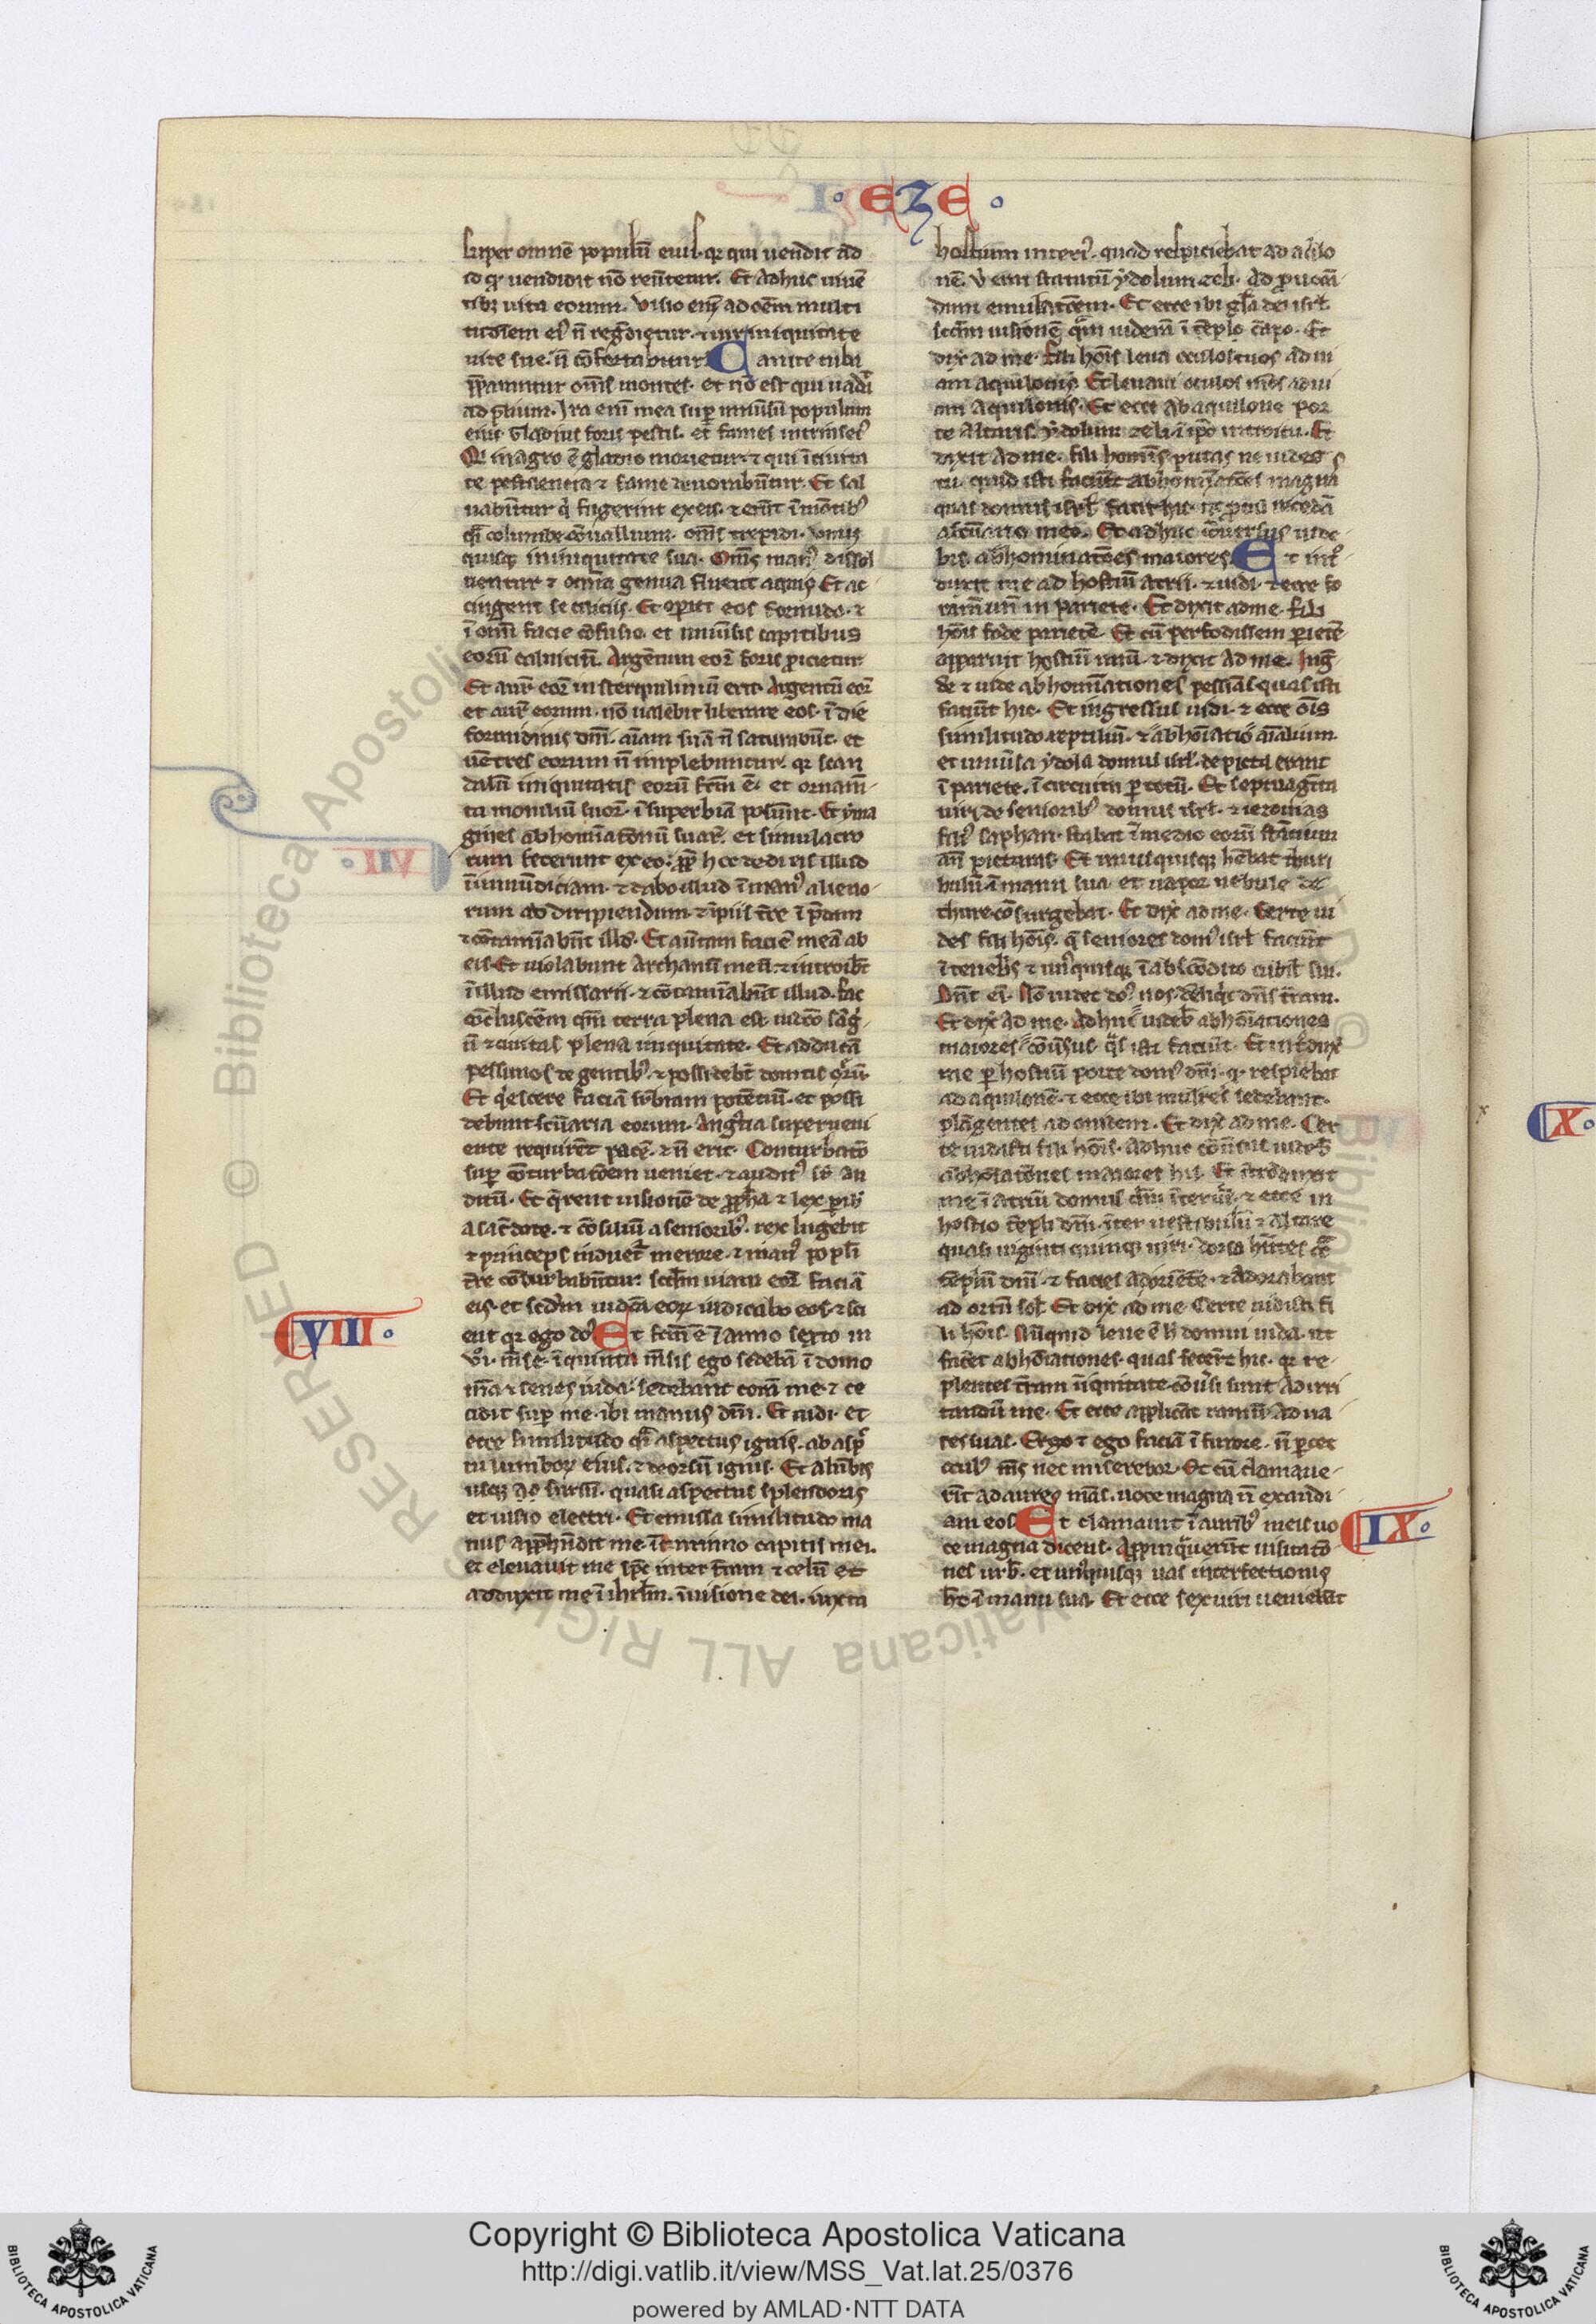 · EZE ·
super omnē populū eius· qr qui uendit ad
id qđ uendidit nō reuertetur. Et adhuc uiuē
tibȝ uita eorum. Visio eni ad oēm multi
tudinem eiꝰ ñ regredietur. ⁊ uir iniquitate
uite sue ñ cōfortabitur. Canite tuba
p̄parentur om̄s montes. et nō est qui uadat
ad p̄lium. Ira eni mea sup uniūsū populum
eius Gladius foris pestis. et fames intrinsecꝰ
Qi in agro ē gladio morietur. ⁊ qui ī ciuita
te pestilentia ⁊ fame deuorabūtur. Et sal
uabūtur q̇ fugerint ex eis. ⁊ erūt ī mōtibꝰ
q̄i columbe cōuallium. om̄s trepidi. unus
quisqȝ in iniquitate sua. Om̄s manꝰ dissol
uentur ⁊ omīa genua fluent aquis Et ac
cingent se ciliciis. Et opiet eos formido. ⁊
ī omī facie cōfusio. et ī uniuersis capitibus
eorū caluiciū. Argentum eoꝝ foris proicietur
Et auꝝ eoꝝ in sterquiliniū erit. Argentū eoꝝ
et auꝝ eorum. nō ualebit liberare eos. ī die
furoris dn̄i. aīam suā ñ saturabūt. et
uētres eorum ñ implebuntur. qr scan
dalū iniquitatis eorū fcm̄ ē. et ornam̄
ta moniliū suoꝝ. ī superbiā posuēnt. Et yma
gines abhominationū suaꝝ. et simulacro
rum fecerunt ex eo. pp̄ hoc dedi eis illud
ī inmūdiciam. ⁊ dabo illud ī manꝰ alieno-
rum ad diripiendum. ⁊ īpiis tr̄e ī p̄dam
⁊ cōtamīabūt illud. Et auertam faciē meā ab
eis. Et uiolabunt archanū meū. ⁊ introibt
ī illud emissarii. ⁊ cōtamīabūt illud. fac
cōclusiōem qm̄ terra plena est iudicio sāg̈-
ñ ⁊ ciuitas plena iniquitate. Et adducā
pessimos de gentibꝰ. ⁊ possidebt domus eoꝝ.
Et q̇escere faciā supbiam potētiū. et possi
debunt scūaria eorum. Angustia superueni
ente requirēt pacē. ⁊ ñ erit. Conturbatō
sup cōturbatōem ueniet. ⁊ auditꝰ sup au
ditū. Et q̄rent uisionē de pp̄ha ⁊ lex pibit
a sac̄dote. ⁊ cōsiliū a senioribꝰ. rex lugebit
⁊ princeps induet̄ merore. ⁊ manꝰ popli
tr̄e cōturbabūtur. scd̄m uiam eoꝝ faciā
eis. et scd̄m iudicia eoꝝ iudicabo eos. ⁊ sci
ent qr ego dn̄s Et fcm̄ ē ī anno sexto in
VIII·
vi. mēse. ī quinta mēsis ego sedebā ī domo
mea ⁊ senes iuda sedebant corā me. ⁊ ce
cidit sup me ibi manus dn̄i. Et uidi. et
ecce similitudo q̄i aspectus ignis. ab aspec
tu lumboꝝ eius. ⁊ deorsū ignis. Et a lūbis
usqȝ ad sursū. quasi aspectus splendoris
et uisio electri. Et emissa similitudo ma
nus app̄hendit me ī cincinno capitis mei.
et eleuauit me sp̄c inter terram ⁊ celū et
adduxit me ī ihrlm̄. ī uisione dei. iuxta
hostium interiꝰ. quod respiciebat ad aqlo
nē. Vbi erat statutū ydolum zeli. ad prouocā-
dum emulatōem. Et ecce ibi gl̄a dei isrl̄.
scd̄m uisionē quā uiderā ī campo. Et
dix̄ ad me. fili hoīs leua oculos tuos ad ui
am aquilonis Et leuaui oculos meos ad ui
am aquilonis. Et ecce ab aquilone por
te altaris. ydolum zeli ī ipo introitu. Et
dixit ad me. fili homīs putas ne uides
tu. quid isti faciūt abhomīatōes magna
quas domus isrl̄ facit hic. ut procul recedā
a scūario meo. Et adhuc cōuersus uide-
bis abhominatōes maiores. Et intͦ-
duxit me ad hostiū atrii. ⁊ uidi. ⁊ ecce fo
ramen unū in pariete. Et dixit ad me. fili
hoīs fode parietē. Et cū perfodissem parietē
apparuit hostiū unū. ⁊ dixit ad me. Ing̈-
de ⁊ uide abhomīationes pessīas quas isti
faciūt hic. Et ingressus uidi. ⁊ ecce ōis
similitudo reptiliū. ⁊ abhoīatio aīalium.
et uniūsa ydola domus isrl̄. depicta erant
ī pariete. ī circuitu p totū. Et septuagīta
uiri de senioribꝰ domus isrl̄. ⁊ ieconias
filiꝰ saphan. stabat ī medio eorū stātium
añ picturas. Et unusquisqȝ hēbat thuri
bulū ī manu sua. et uapor nebule de
thure cōsurgebat. Et dix̄ ad me. Certe ui
des fili hoīs. q̄ seniores domꝰ isrl̄ faciūt
ī tenebris ⁊ unꝰquisqȝ ī abscōdito cubil sui.
Dn̄t eni. Nō uidet dn̄s nos. dereliq̇t dn̄s terram.
Et dix̄ ad me. Adhuc uideb abhoīationes
maiores cōuersus. q̄s isti faciūt. Et intͦdux̄
me p hostiū porte domꝰ dn̄i. q̄ respiciebat
ad aquilonē. ⁊ ecce ibi mulieres sedebant.
plāgentes adonidem. Et dix̄ ad me. Cer
te uidisti fili hoīs. Adhuc cōuersus uideb
abhoīatōnes maiores his. Et ītrͦduxit
me ī atriū domus dn̄i īterius. ⁊ ecce in
hostio tēpli dn̄i. īter uestibulū ⁊ altare
quasi uiginti quinqȝ uiri. dorsa hn̄tes cͣ
tēplū dn̄i. ⁊ facies ad oriētē. ⁊ adorabant
ad ortū sol. Et dix̄ ad me. Certe uidisti fi
li hoīs. Nūquid leue ē h̄ domui iuda. ut
facēt abhoīationes. quas fecert hic. qr re-
plentes terram īiquitate. cōuersi sunt ad irri
tandū me. Et ecce applicāt ramū ad na
res suas. Ergo ⁊ ego faciā ī furore. ñ pcet
oculꝰ meꝰ nec miserebor. Et cū clamaue-
rīt ad aures meas. uoce magna ñ exaudi-
am eos Et clamauit ī auribꝰ meis uo
IX·
ce magna dicens. Appropinquauerūt uisitatō
nes urb. et unꝰquisqȝ uas interfectionis
h̄t ī manu sua. Et ecce sex uiri ueniebāt
X·
Copyright © Biblioteca Apostolica Vaticana
http://digi.vatlib.it/view/MSS_Vat.lat.25/0376
powered by AMLAD·NTT DATA
BIBLIOTECA APOSTOLICA VATICANA
BIBLIOTECA APOSTOLICA VATICANA